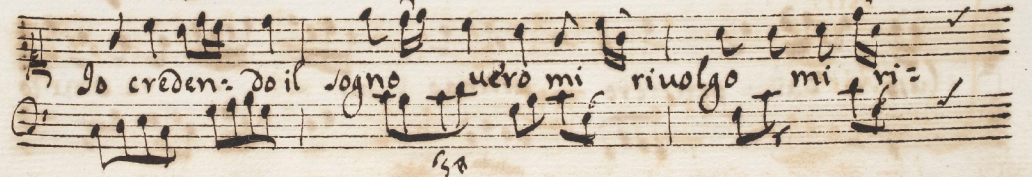 Io creden:- do il sogno uero mi riuolgo mi ri:-